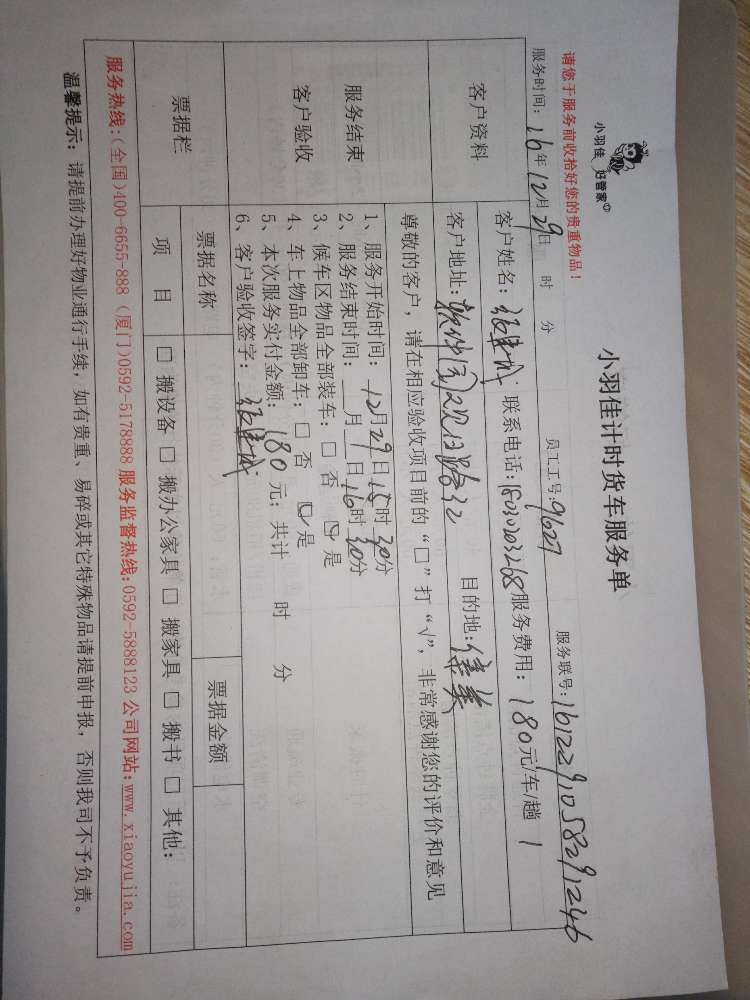 小羽佳 好管家
小羽佳计时货车服务单
请您于服务前收拾好您的贵重物品!
员工工号:9627
服务联号:1612291058291246
服务时间: 16年12月29日 时 分
客户资料
客户姓名: 联系电话:18030203268 服务费用: 180元/车/趟 1
客户地址: 软件园观日路32 目的地:
尊敬的客户,请在相应验收项目前的“□”打“√”,非常感谢您的评价和意见
服务结束
客户验收
1、服务开始时间: 12月29日15时30分
2、服务结束时间: 月 日16时30分
3、候车区物品全部装车: □ 否 ☑ 是
4、车上物品全部卸车: □ 否 ☑ 是
5、本次服务实付金额: 180元; 共计 时 分
6、客户验收签字:
票据栏
票据名称 票据金额
项 目 □ 搬设备 □ 搬办公家具 □ 搬家具 □ 搬书 □ 其他:
服务热线:(全国)400-6655-888 (厦门)0592-5178888 服务监督热线:0592-5888123 公司网站:www.xiaoyujia.com
温馨提示: 请提前办理好物业通行手续,如有贵重、易碎或其它特殊物品请提前申报,否则我司不予负责。